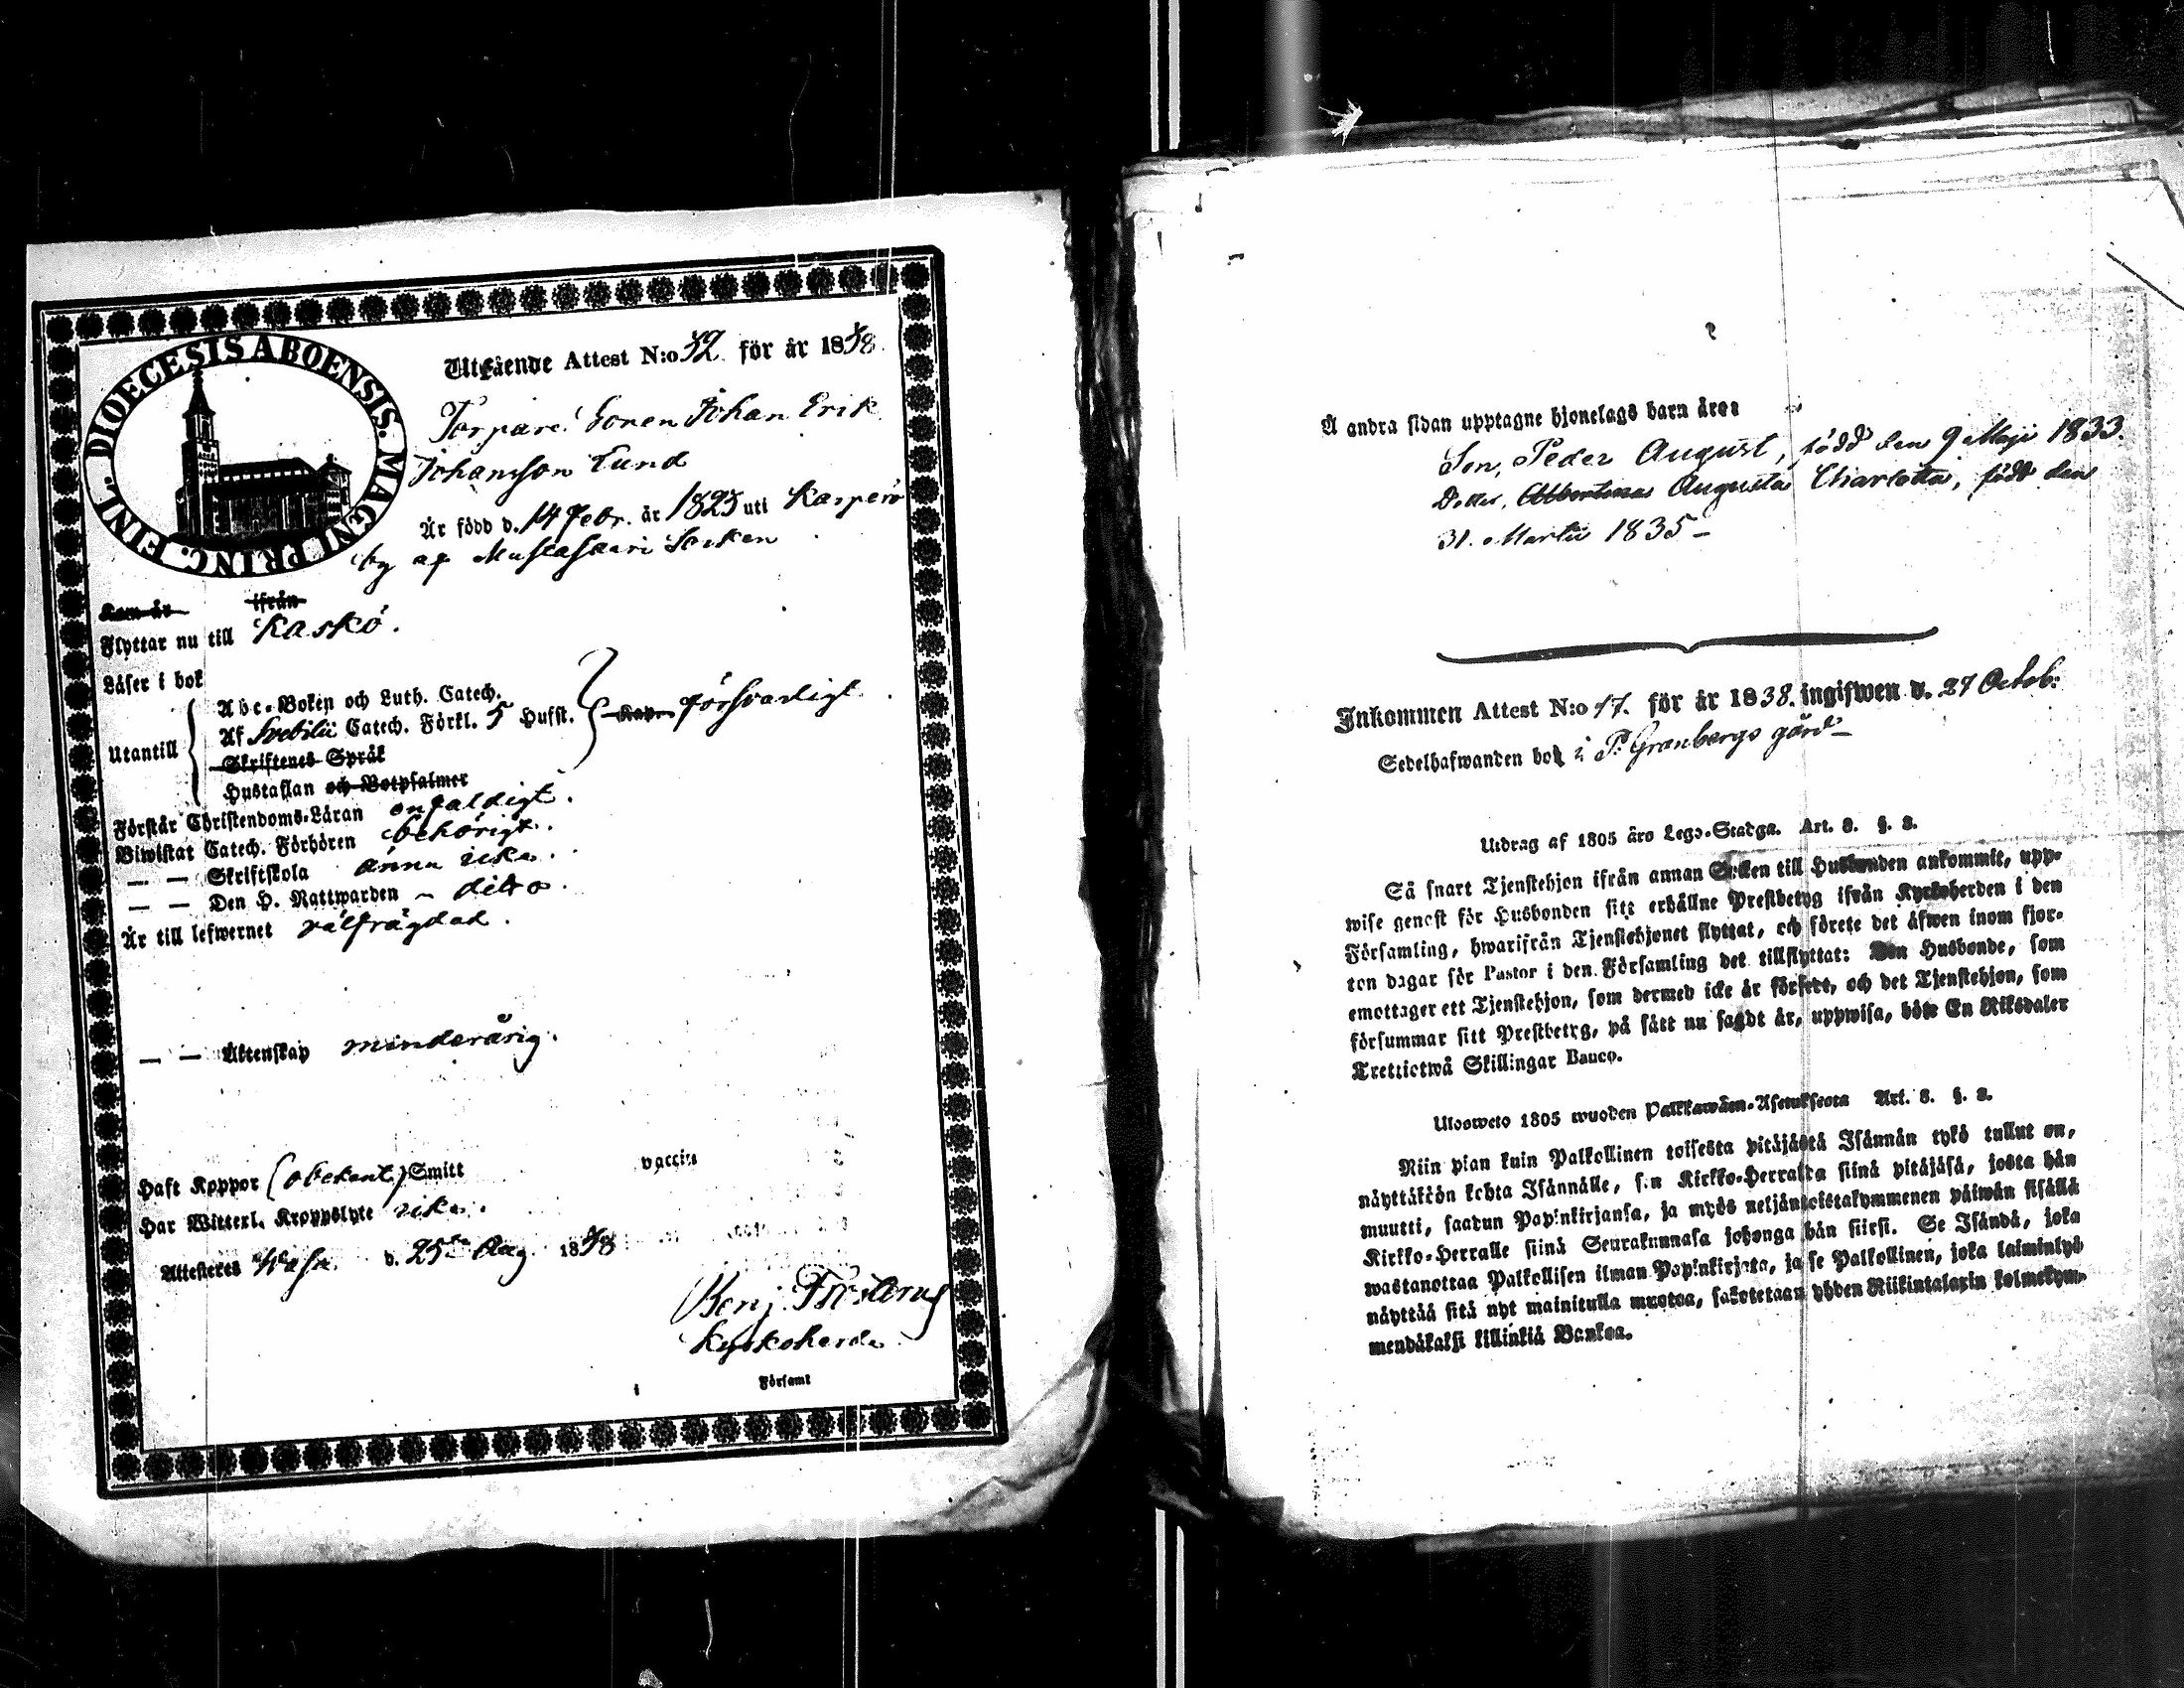 DIOECESIS ABOENSIS. MAGNI PRINC. FINL.
Utgående Attest N:o 52. för år 1838.
Torpare Sonen Johan Erik
Johansson Lund
Är född d. 14 Febr. år 1823 uti Karperö
by af Mustasaari Socken
Kom år ifrån
Flyttar nu till Kaskö.
Läser i bok
Utantill
Abc-Boken och Luth. Catech.
Af Svebilii Catech. Förkl. 5 Hufst. försvarligt.
Skriftenes Språk
Hustaflan och Botpsalmer
Förstår Christendoms-Läran enfaldigt.
Biwistat Catech. Förhören behörigt.
— — Skriftskola ännu icke.
— — Den H. Nattwarden – ditto.
Är till lefwernet välfrägdad.
— — Äktenskap minderårig.
Haft Koppor (obekant) Smitt vaccin
Har Witterl. Kroppslyte icke.
Attesteres Wasa d. 25te Aug. 1838
Benj. Frosterus
Kyrkoherde
Församl
Å andra sidan upptagne hjonelags barn äro:
Son, Peder August, född den 9 Maji 1833.
Dotter, Albertina Augusta Charlotta, född den
31. Martii 1835 –
Inkommen Attest N:o 17. för år 1838. ingifwen d. 27 Octob:
Sedelhafwanden bor i P. Granbergs gård –
Utdrag af 1805 års Lego-Stadga. Art. 8. §. 2.
Så snart Tjenstehjon ifrån annan Socken till Husbonden ankommit, upp-
wise genast för Husbonden sitt erhållne Prestbetyg ifrån Kyrkoherden i den
Församling, hwarifrån Tjenstehjonet flyttat, och förete det äfwen inom fjor-
ton dagar för Pastor i den Församling det tillflyttat: Den Husbonde, som
emottager ett Tjenstehjon, som dermed icke är försedt, och det Tjenstehjon, som
försummar sitt Prestbetyg, på sätt nu sagdt är, uppwisa, böte En Riksdaler
Trettiotwå Skillingar Banco.
Ulosweto 1805 wuoden Palkkawäen-Asetuksesta Art. 8. §. 2.
Niin pian kuin Palkollinen toisesta pitäjästä Isännän tykö tullut on,
näyttäköön kohta Isännälle, sen Kirkko-Herralta siinä pitäjäsä, josta hän
muutti, saadun Papinkirjansa, ja myös neljäntoistakymmenen päiwän sisällä
Kirkko-Herralle siinä Seurakunnasa johonga hän siirsi. Se Isändä, joka
wastanottaa Palkollisen ilman Papinkirjata, ja se Palkollinen, joka laiminlyö
näyttää sitä nyt mainitulla muotoa, sakotetaan yhden Riikintalarin kolmekym-
mendäkaksi killinkiä Bankoa.